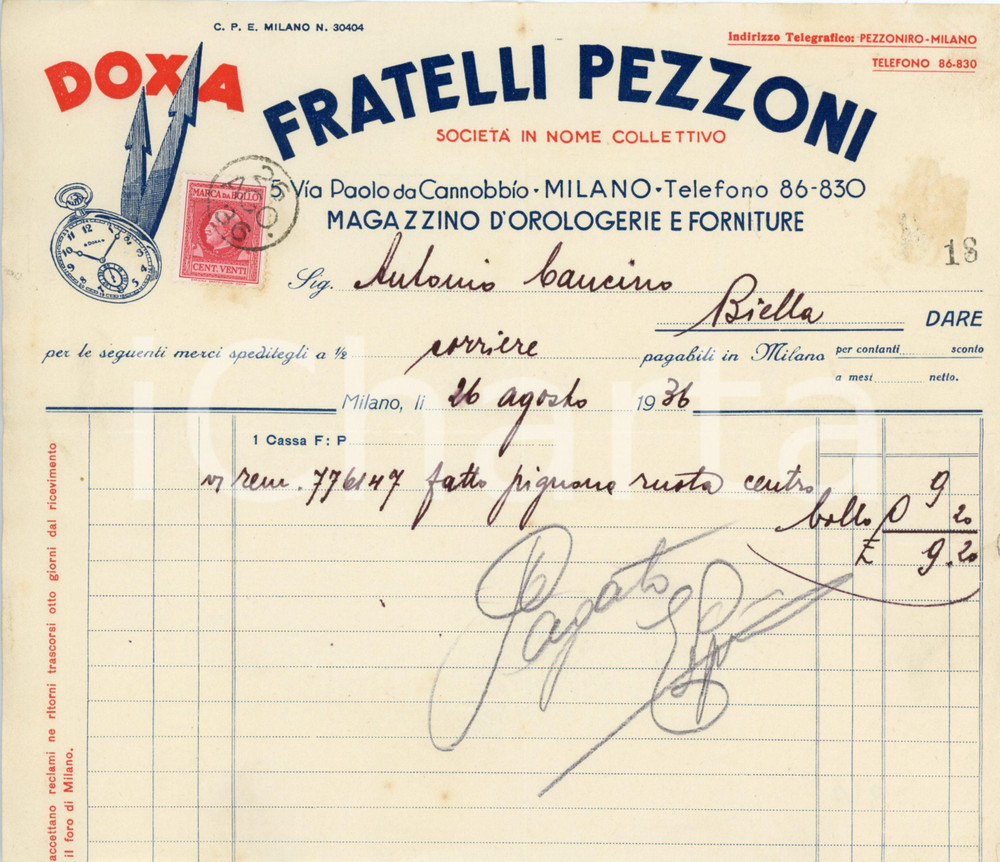 C. P. E. MILANO N. 30404
Indirizzo Telegrafico: PEZZONIRO-MILANO
TELEFONO 86-830
DOXA
FRATELLI PEZZONI
SOCIETÀ IN NOME COLLETTIVO
Via Paolo da Cannobbio · MILANO · Telefono 86-830
MAGAZZINO D'OROLOGERIE E FORNITURE
MARCA DA BOLLO
CENT. VENTI
26 AGO. 36
18
Sig. Antonio Cancino
Biella
DARE
per le seguenti merci speditegli a ½ corriere pagabili in Milano per contanti sconto
a mesi netto.
Milano, li 26 agosto 1936
1 Cassa F: P
vs rem. 776147 fatto pignone ruota centro 9
bollo 20
£ 9.20
Pagato
accettano reclami ne ritorni trascorsi otto giorni dal ricevimento
il foro di Milano.
iCharta